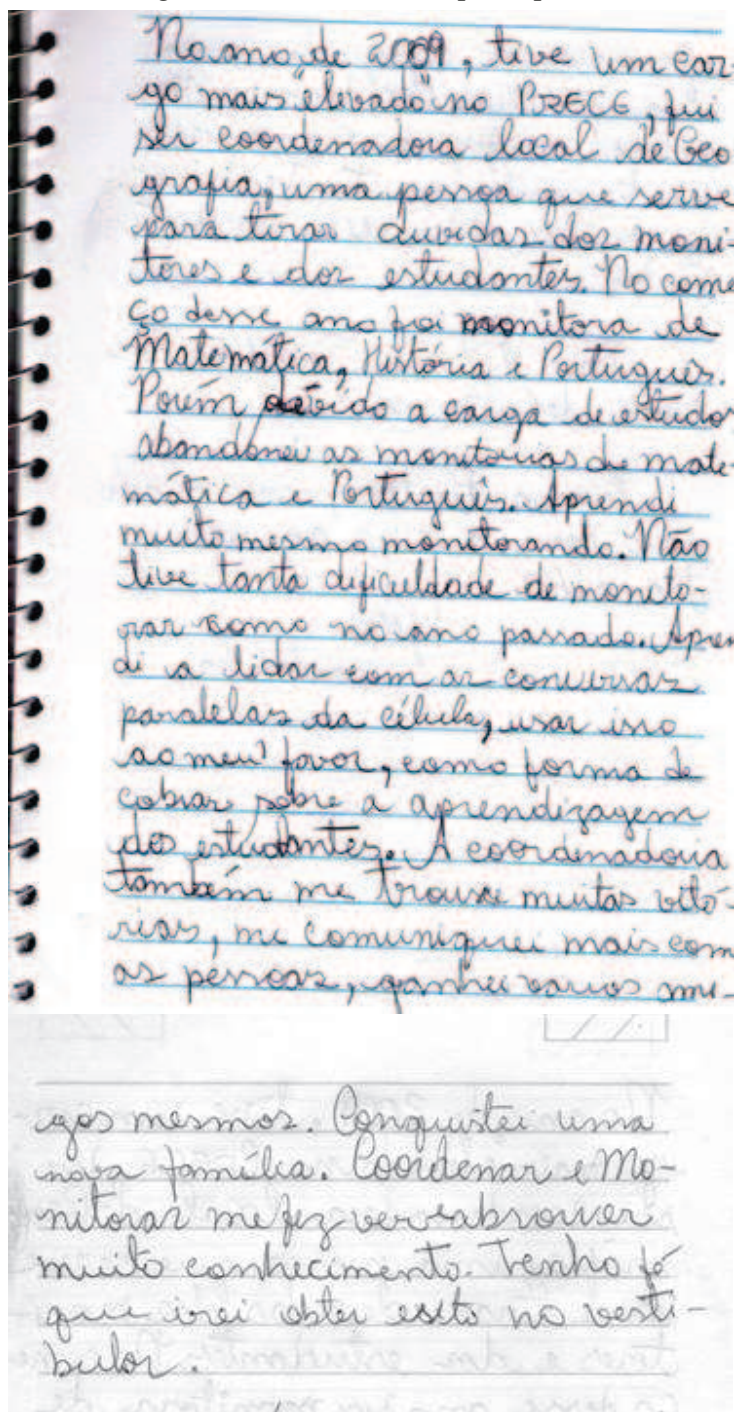 No ano de 2009, tive um car-
go mais "elevado" no PRECE, fui
ser coordenadora local de Geo
grafia, uma pessoa que serve
para tirar duvidas dos moni-
tores e dos estudantes. No come
ço desse ano foi monitora de
Matemática, História e Português.
Porém devido a carga de estudos
abandonei as monitorias de mate-
mática e Português. Aprendi
muito mesmo monitorando. Não
tive tanta dificuldade de monito-
rar como no ano passado. Apren
di a lidar com as conversas
paralelas da célula, usar isso
ao meu favor, como forma de
cobrar sobre a aprendizagem
dos estudantes. A coordenadoria
também me trouxe muitas vitó-
rias, me comuniquei mais com
as pessoas, ganhei varios ami-
gos mesmos. Conquistei uma
nova família. Coordenar e Mo-
nitorar me fez
muito conhecimento. Tenho fé
que irei obter esito no vesti-
bular.